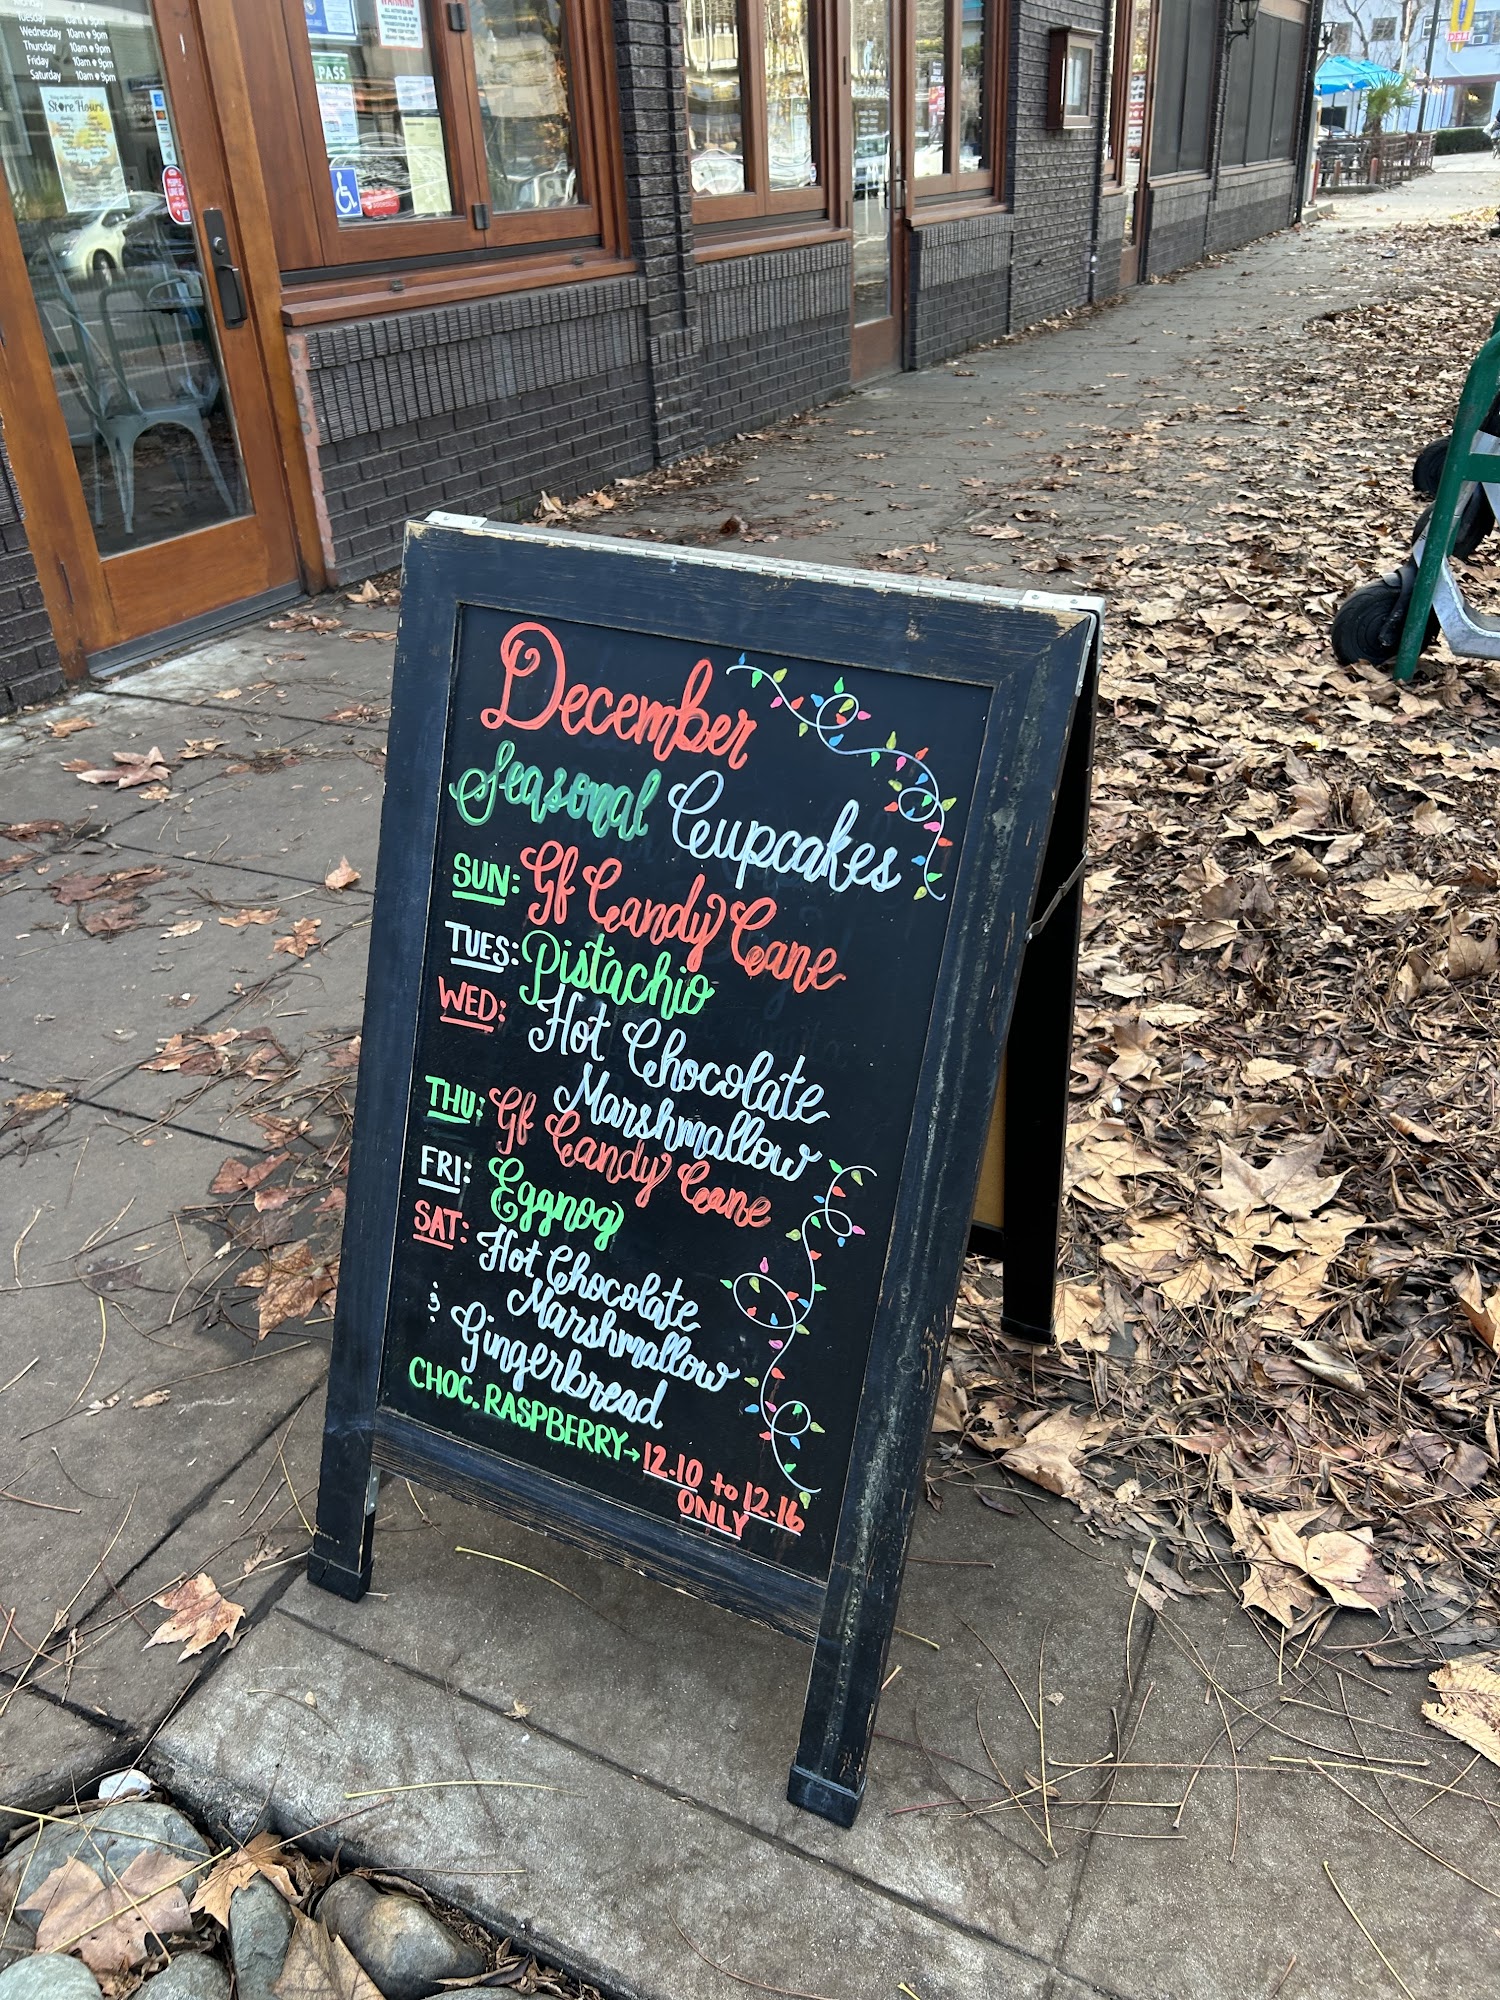 Wednesday 10am - 9pm
Thursday 10am - 9pm
Friday 10am - 9pm
Saturday 10am - 9pm
Store Hours
WARNING
PASS
DELI
December
Seasonal Cupcakes
SUN: Gf Candy Cane
TUES: Pistachio
WED: Hot Chocolate
Marshmallow
THU: Gf Candy Cane
FRI: Eggnog
SAT: Hot Chocolate
Marshmallow
& Gingerbread
CHOC. RASPBERRY→ 12.10 to 12.16
ONLY